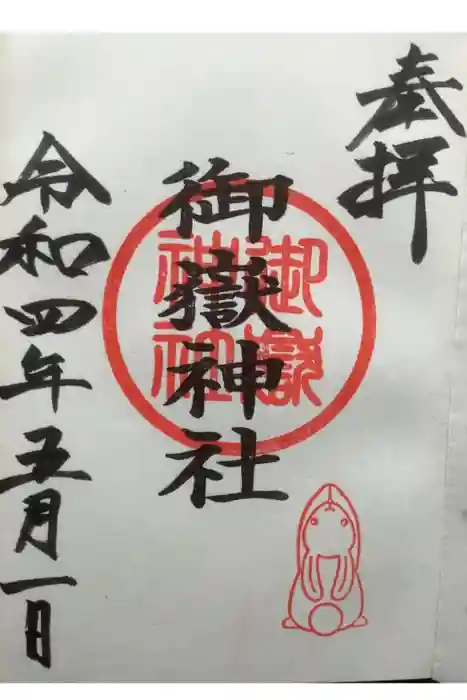 奉拝
御嶽神社
御嶽
神社
令和四年五月一日